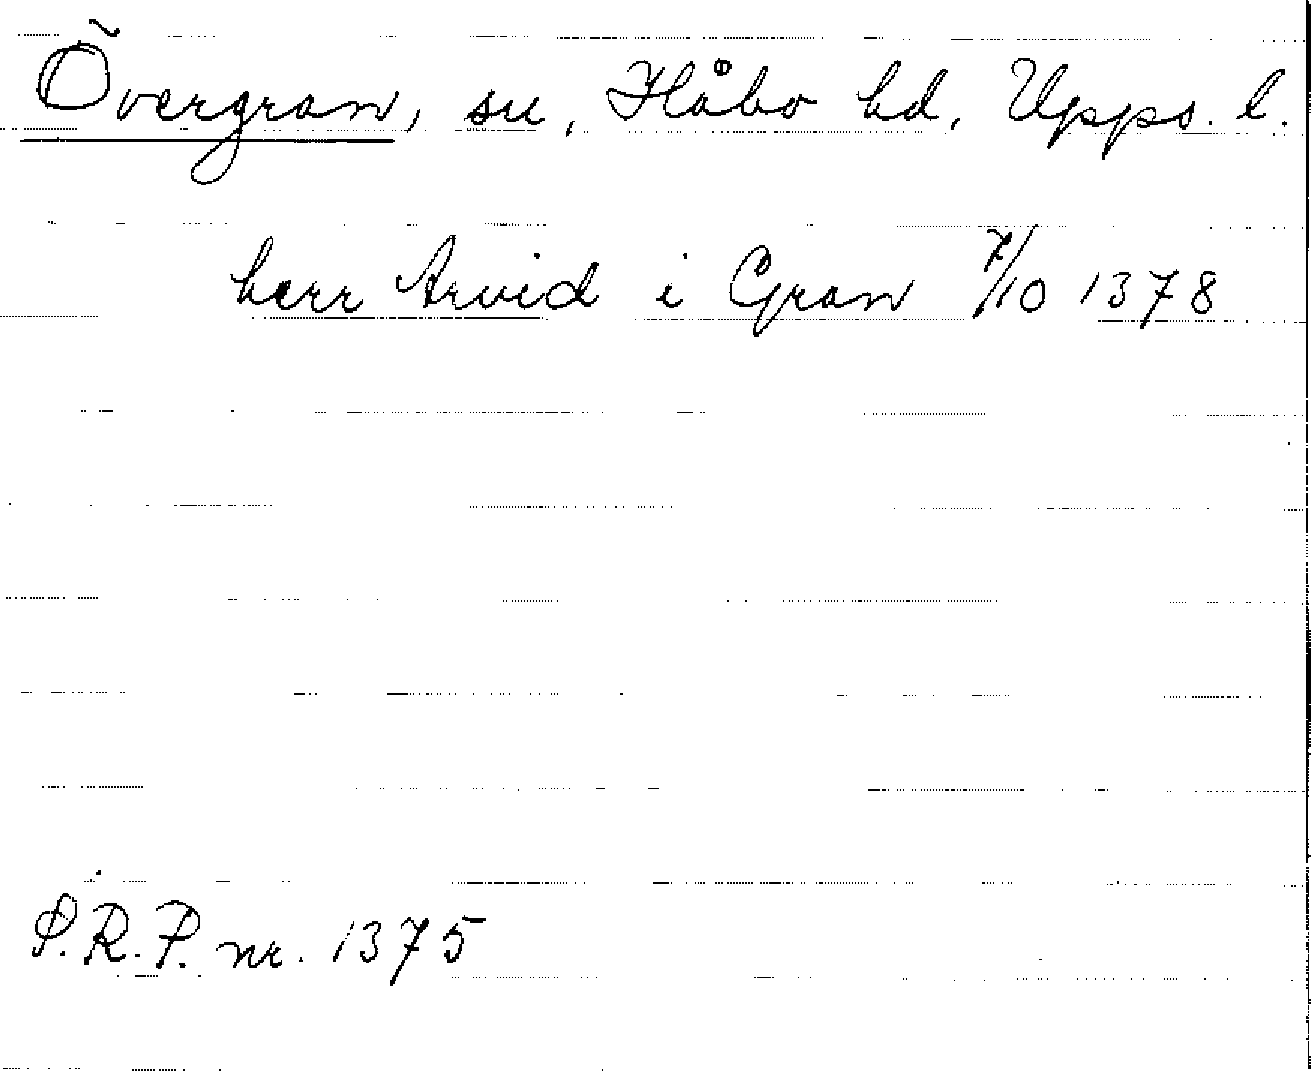 Övergran, sn, Håbo hd, Upps. l.
herr Arvid i Gran 7/10 1378
S.R.P. nr. 1375